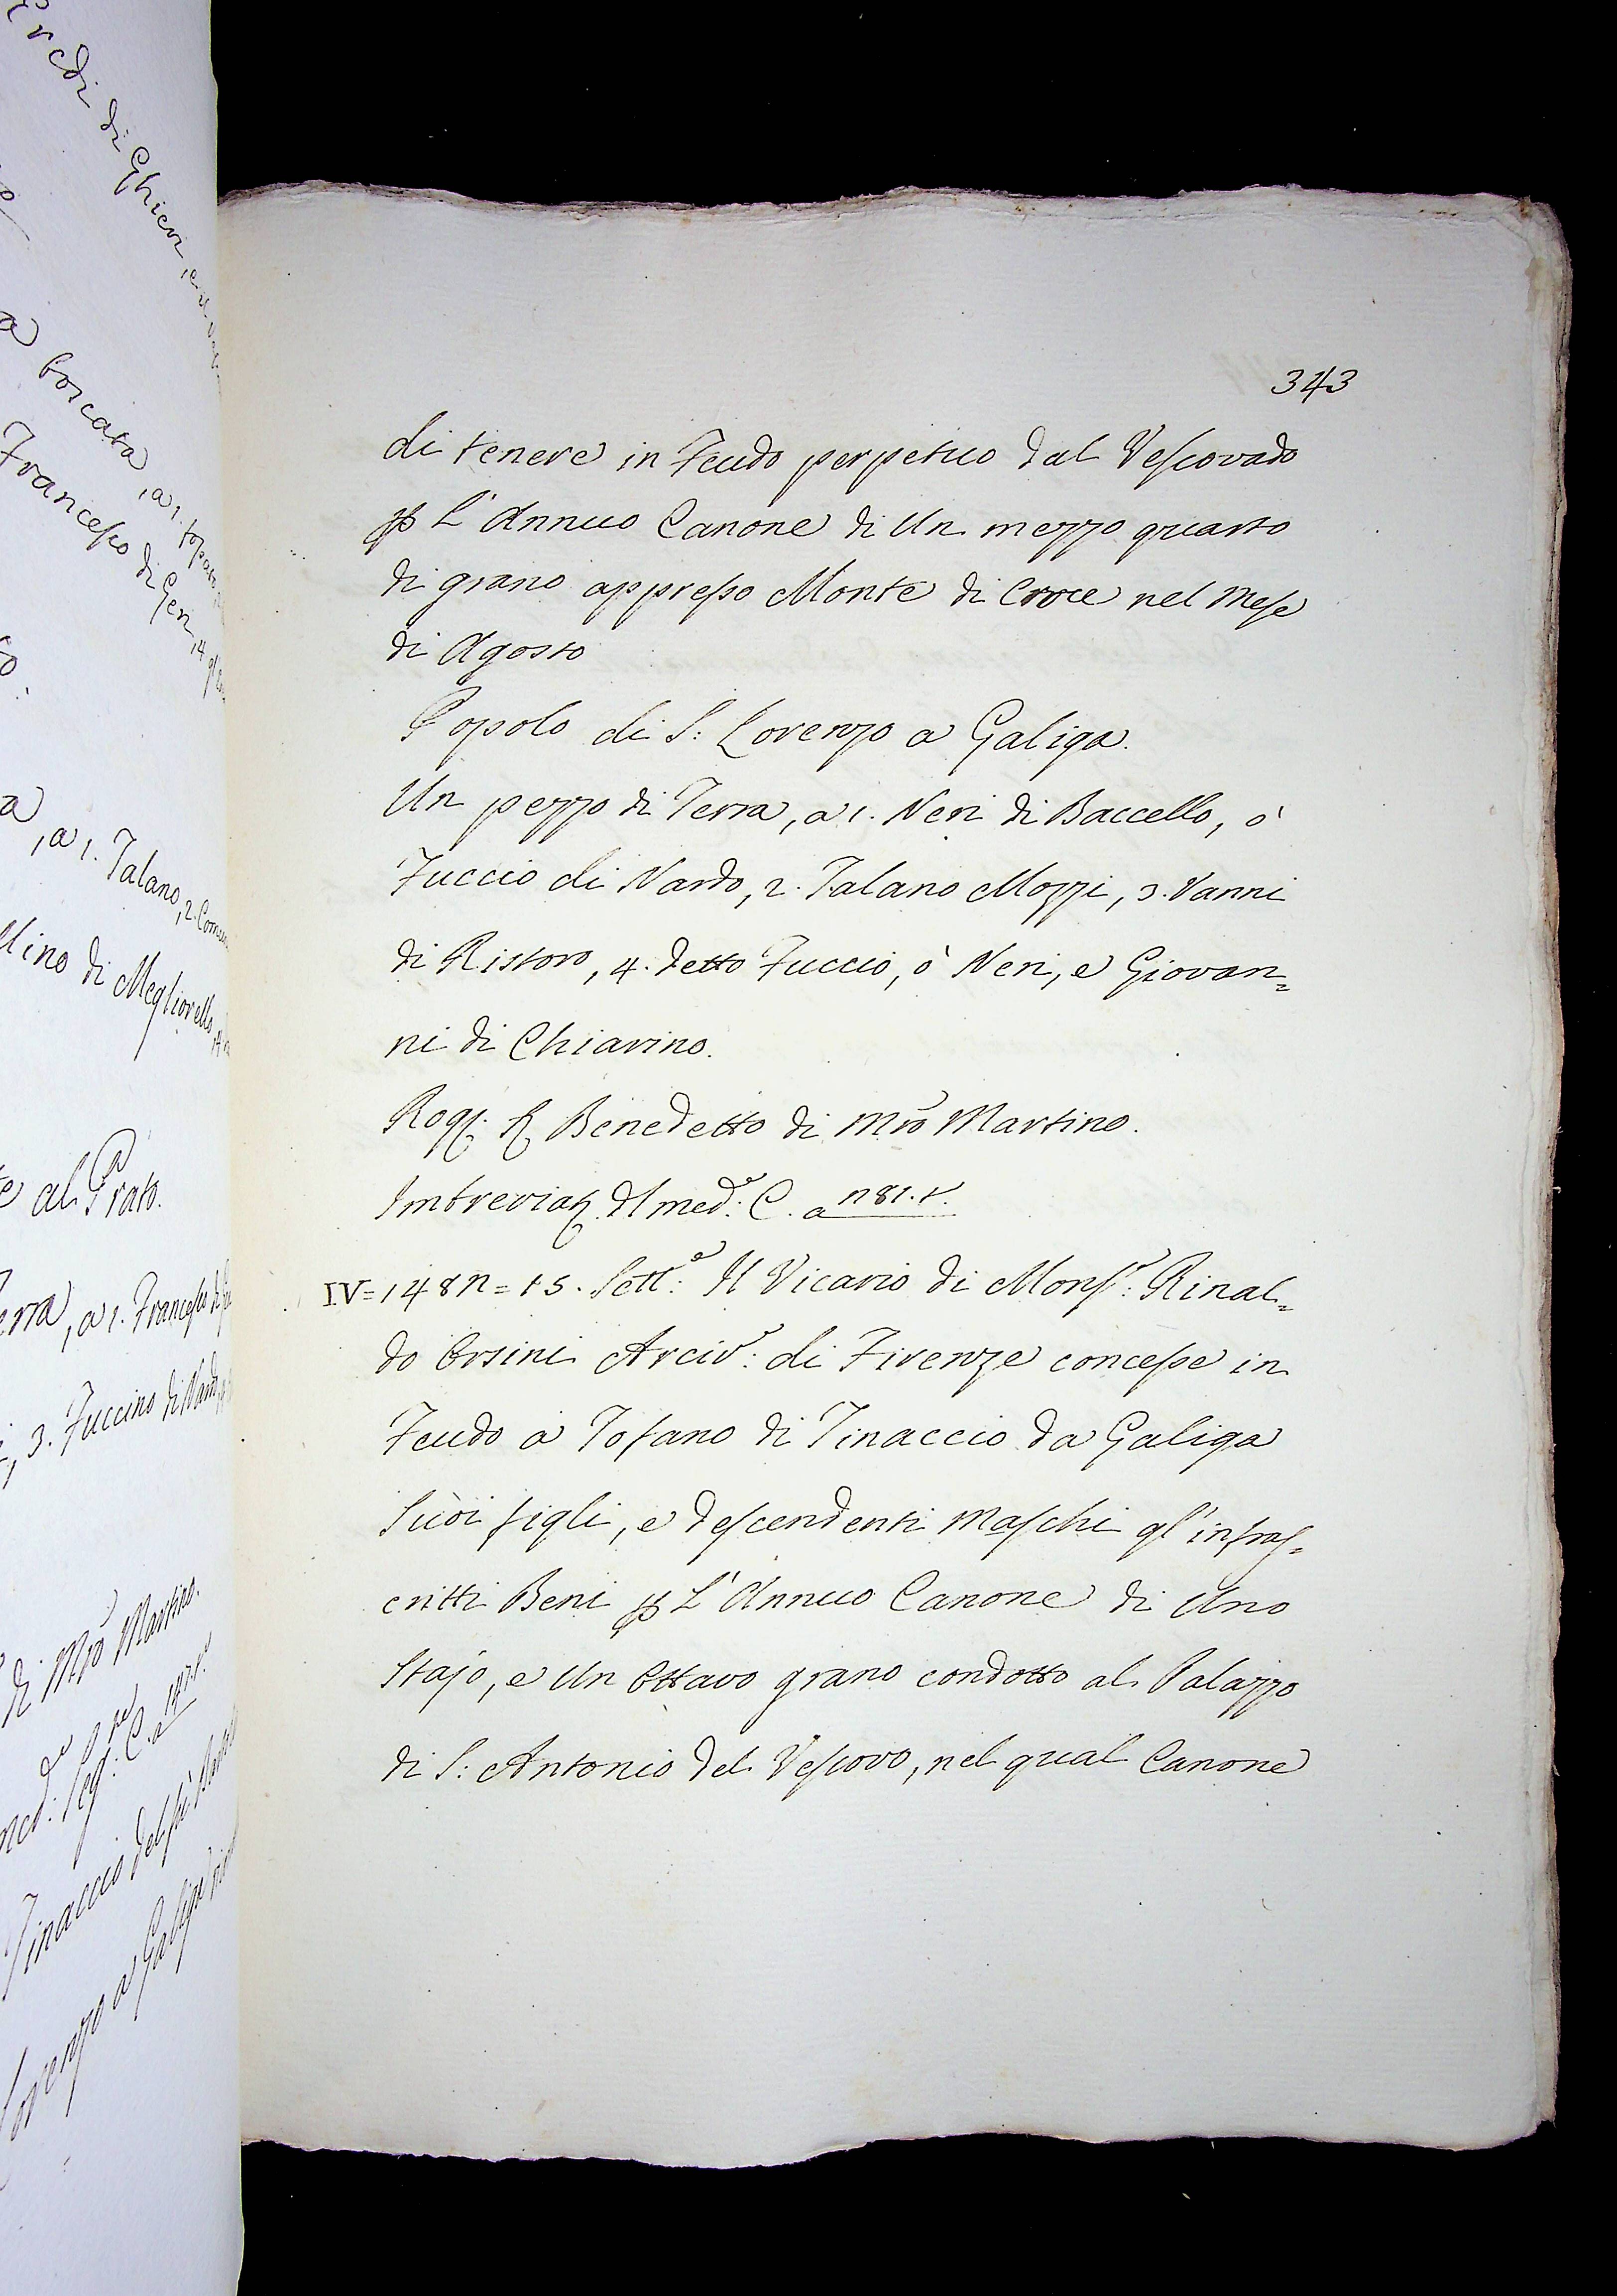 343
di tenere in Feudo perpetuo dal Vescovado
p L'Annuo Canone di Un mezzo quarto
di grano appresso Monte di Croce nel Mese
di Agosto
Popolo di S: Lorenzo a Galiga.
Un pezzo di Terra, a 1. Neri di Baccello, ò
Fuccio di Nardo, 2. Talano Mozzi, 3. Vanni
di Ristoro, 4. detto Fuccio, ò Neri, e Giovan=
ni di Chiarino.
Rog. Benedetto di Mro Martino.
Imbreviaz. dl med.e C. a
IV = 148 = 15. Sett.e Il Vicario di Mons.r: Rinal=
do Orsini Arciv.o: di Firenze concesse in
Feudo a Tofano di Tinaccio da Galiga
Suoi figli, e descendenti Maschi gl'infras=
critti Beni p L'Annuo Canone di Uno
Stajo, e Un Ottavo grano condotto al Palazzo
di S: Antonio del Vescovo, nel qual Canone
Eredi di Ghieri
a boscata, a 1.
Francesco di Geri, 4.
a, a 1. Talano, 2.
di Megliorello
al Prato.
a 1. Francesco
3. Fuccino di
di Mro Martino.
Tinaccio del
Lorenzo a Galiga